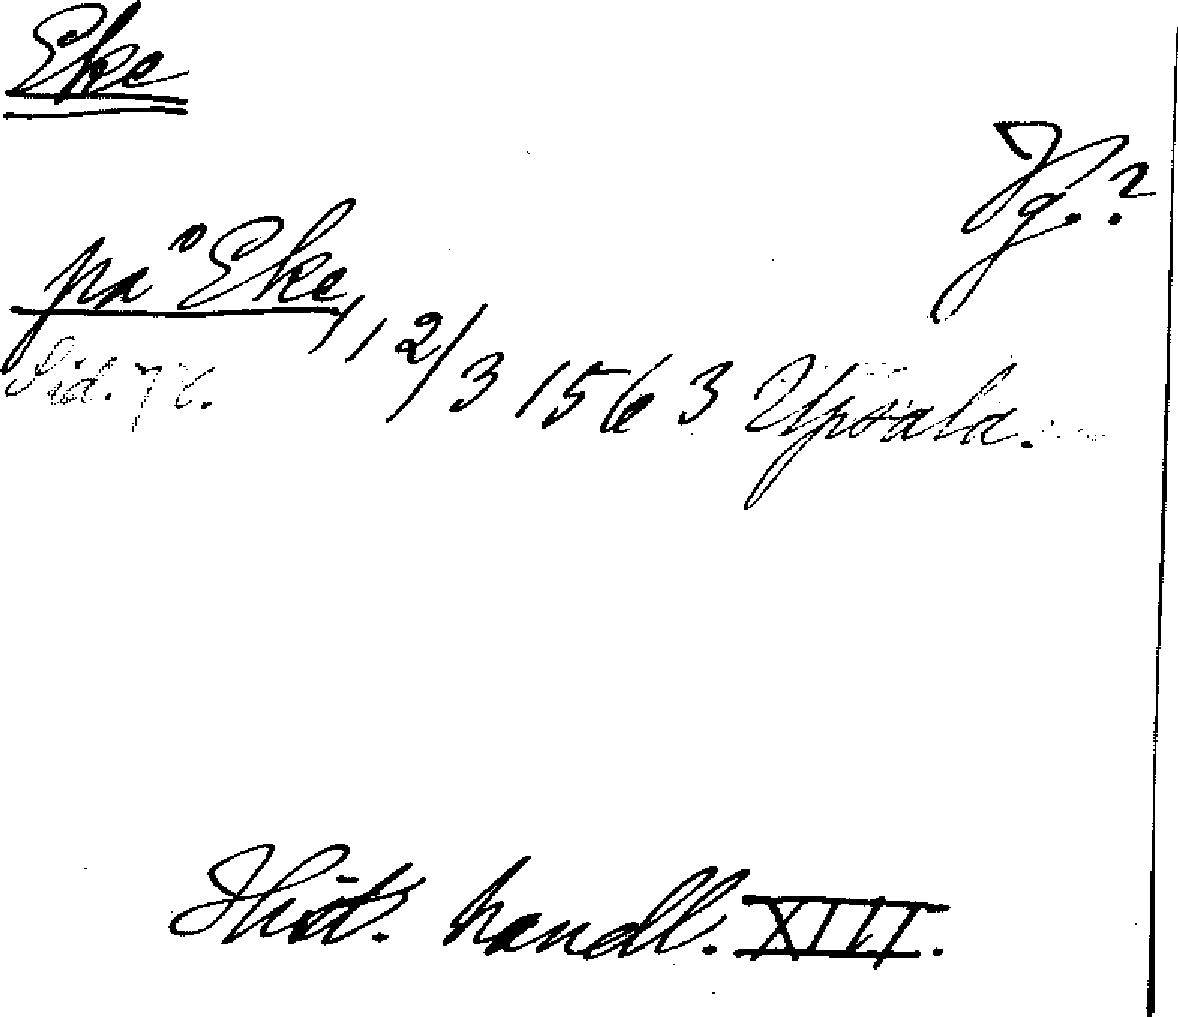 Eke
Vg.?
på Eke, 12/3 1563 Upsala.
Sid. 76.
Hist. handl. XIII.